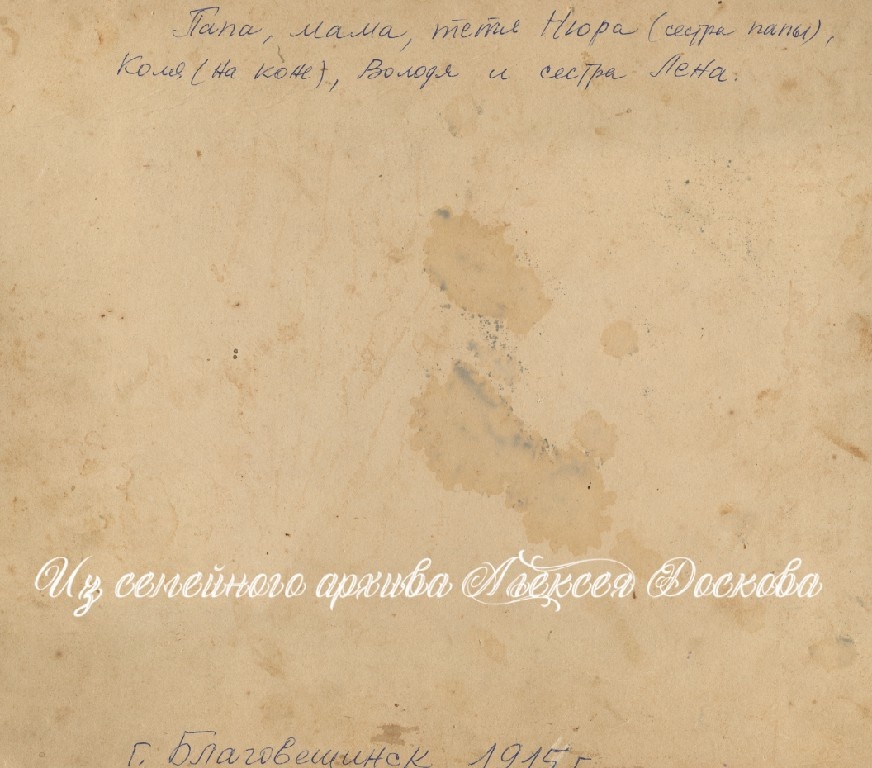 Папа, мама, тетя Нюра (сестра папы),
Коля (на коне), Володя и сестра Лена.
Из семейного архива Алексея Доскова
г. Благовещинск 1915 г.